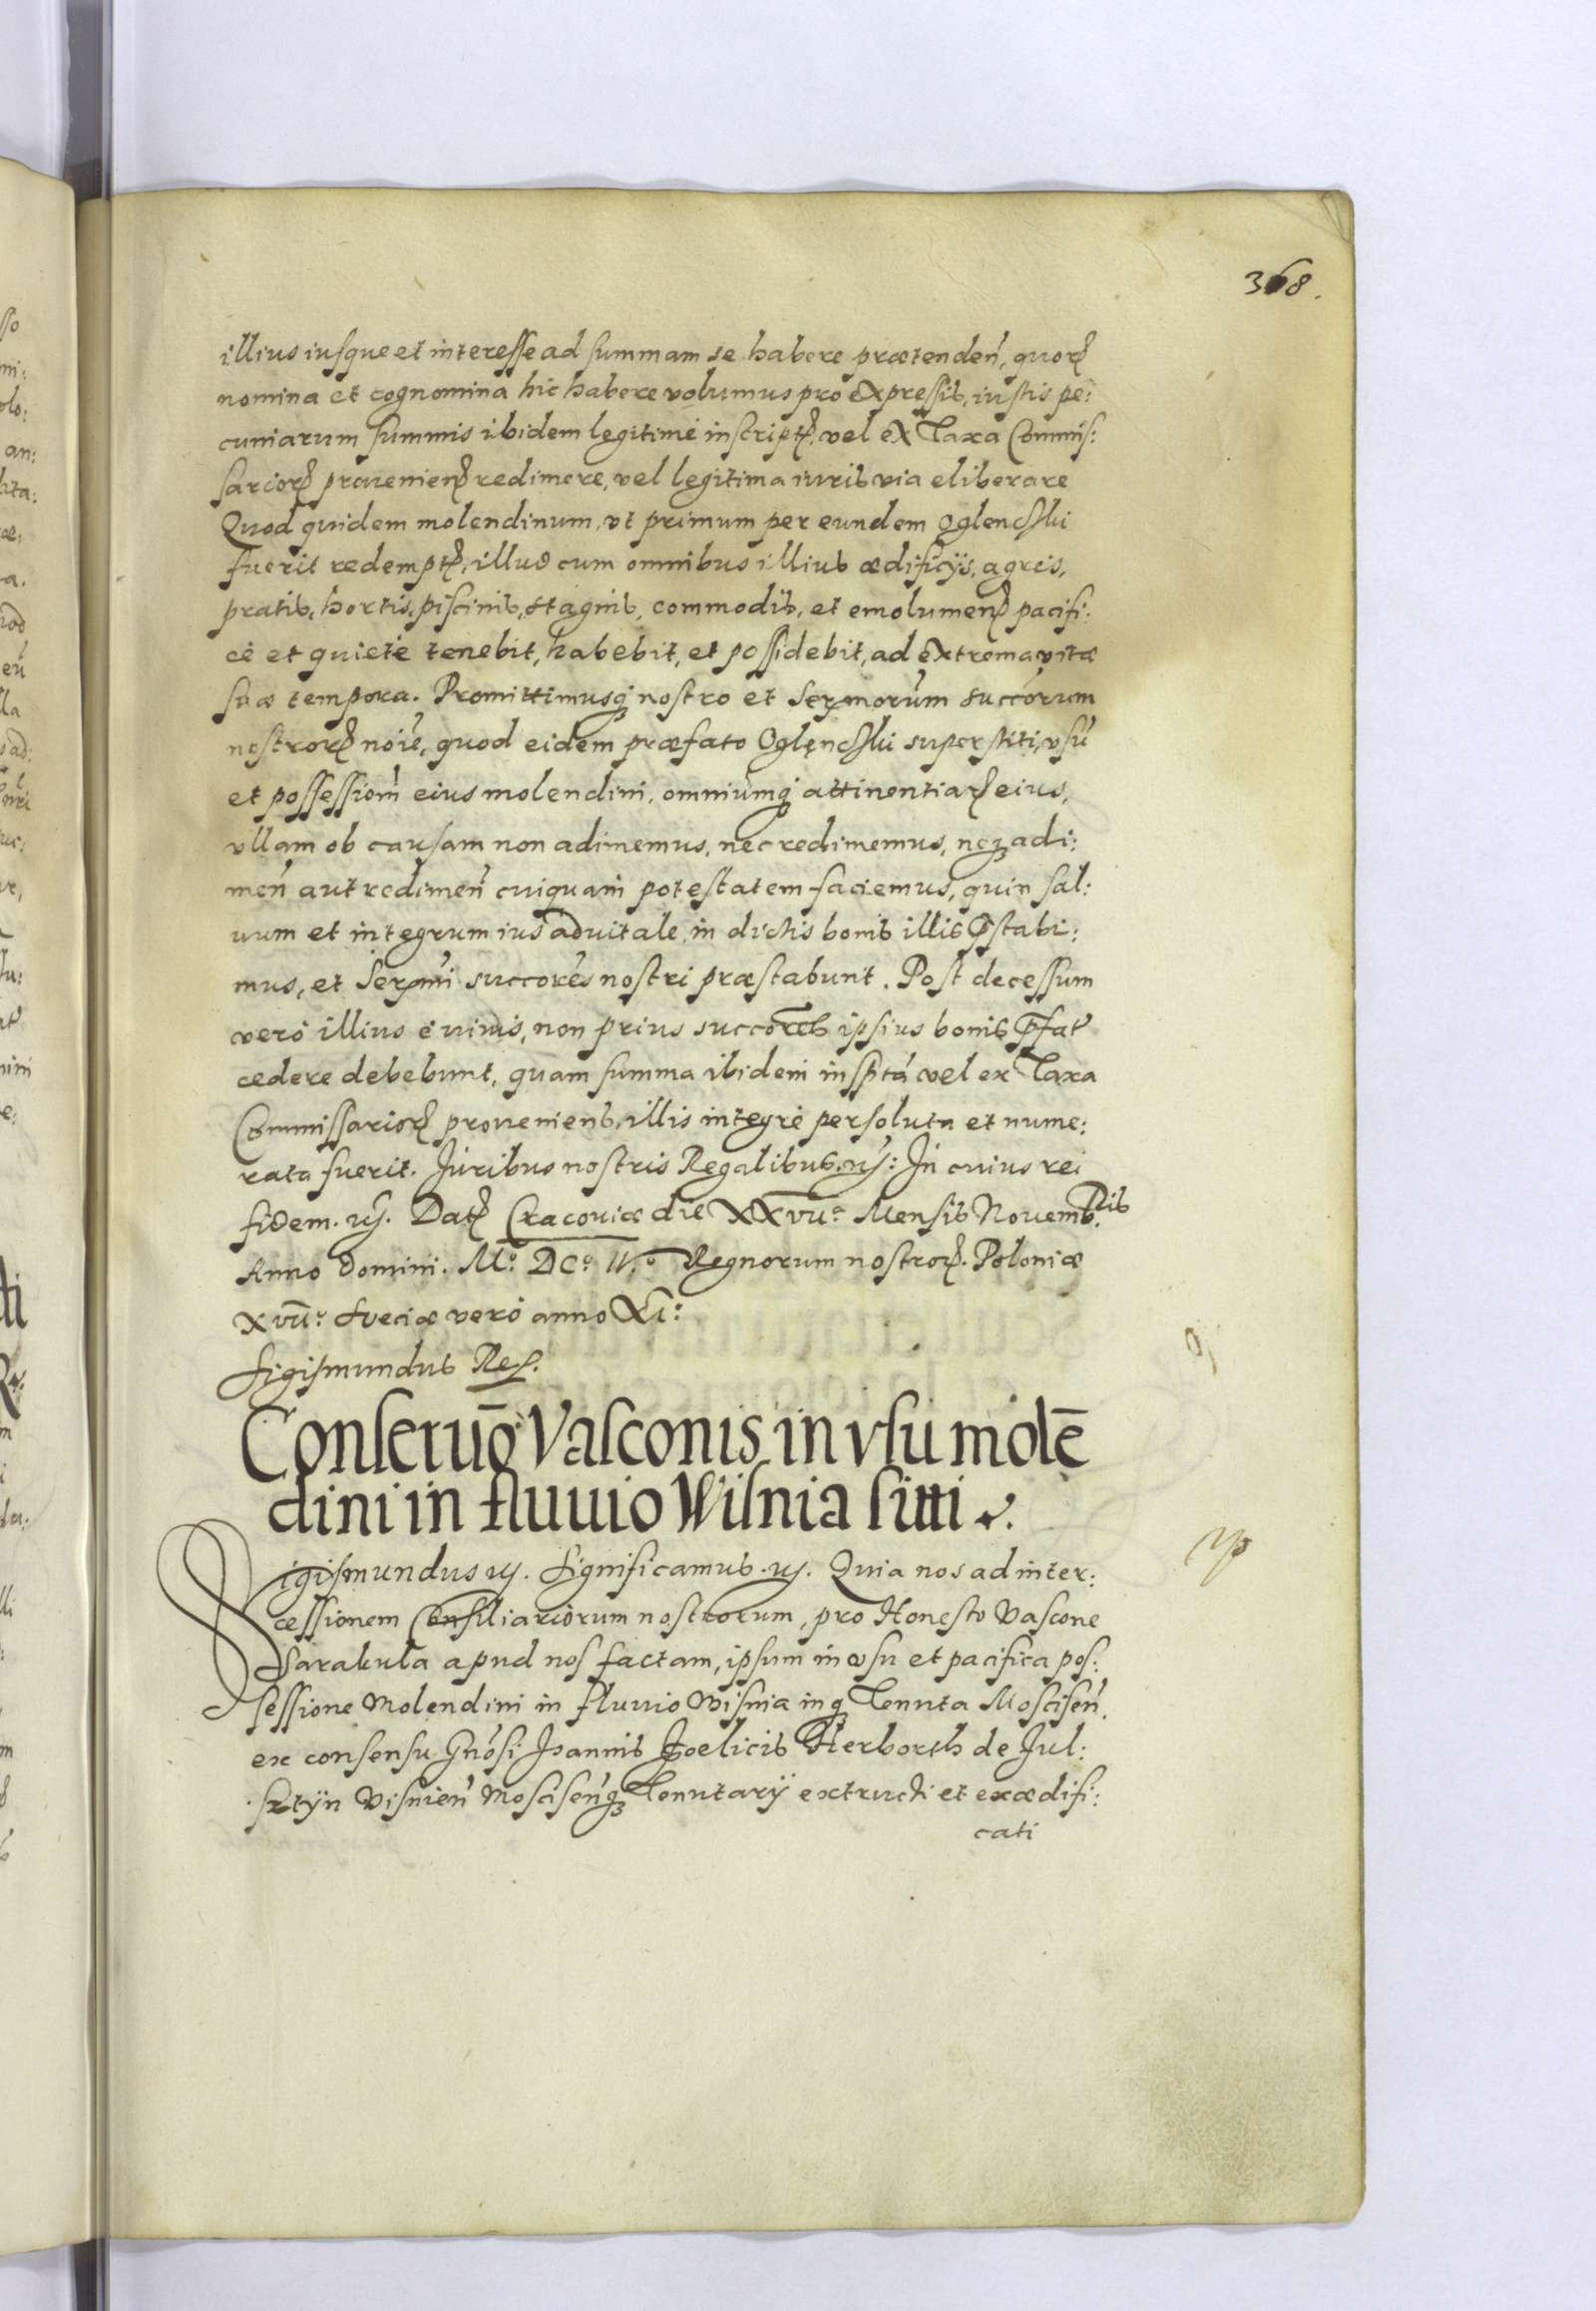 368.
illius iusque et interesse ad summam se habere prætenden̄, quorꝫ
nomina et cognomina hic habere volumus pro expressis, iustis pe:
cuniarum summis ibidem legitimè inscriptꝫ vel ex Taxa Commis:
sariorꝫ prouenienꝫ redimere, vel legitima iuris via eliberare
Quod quidem molendinum, vt primum per eundem Oglenchki
fuerit redemptꝫ, illud cum omnibus illius ædificijs, agris,
pratis, hortis, piscinis, stagnis, commodis, et emolumenꝫ pacifi:
cè et quietè tenebit, habebit, et possidebit, ad extrema vitæ
suæ tempora. Promittimusqꝫ nostro et Serꝫmorūm succōrum
nostrorꝫ nōie, quod eidem præfato Oglęnchki superstiti, vsū
et possessiōm eius molendini, omniumqꝫ attinentiarꝫ eius,
vllam ob causam non adimemus, nec redimemus, neqꝫ adi:
men̄ aut redimen̄ cuiquam potestatem faciemus, quin sal:
uum et integrum ius aduitale in dictis bonis illis p̄stabi:
mus, et Serꝫmi succorēs nostri præstabunt. Post decessum
verò illius è viuis, non prius succores ipsius bonis p̄fatꝫ
cedere debebunt, quam summa ibidem inscpta vel ex Taxa
Commissariorꝫ proueniens, illis integrè persoluta et nume:
rata fuerit. Iuribus nostris Regalibus. ꝛc: In cuius rei
fidem. ꝛc. Datꝫ Cracouiæ die XXVIIa Mensis Nouembris
Anno Domini. Mo: DCo: IVo Regnorum nostrorꝫ. Poloniæ
XVIIo: Sueciæ verò anno XIo:
Sigismundus Rex.
Conseruō Vasconis in vsu molē
dini in fluuio Wisnia sitti.
Sigismundus ꝛc. Significamus. ꝛc. Quia nos ad inter:
cessionem Consiliariorum nostrorum, pro Honesto Vascone
Sarakula apud nos factam, ipsum in vsu et pacifica pos:
sessione Molendini in fluuio Wisnia inqꝫ Tenuta Moscisen̄.
ex consensu Gnōsi Joannis Foelicis Herborth de Ful:
sztyn Visnien̄ Moscisen̄qꝫ Tenutarij extructi et exædifi:
cati